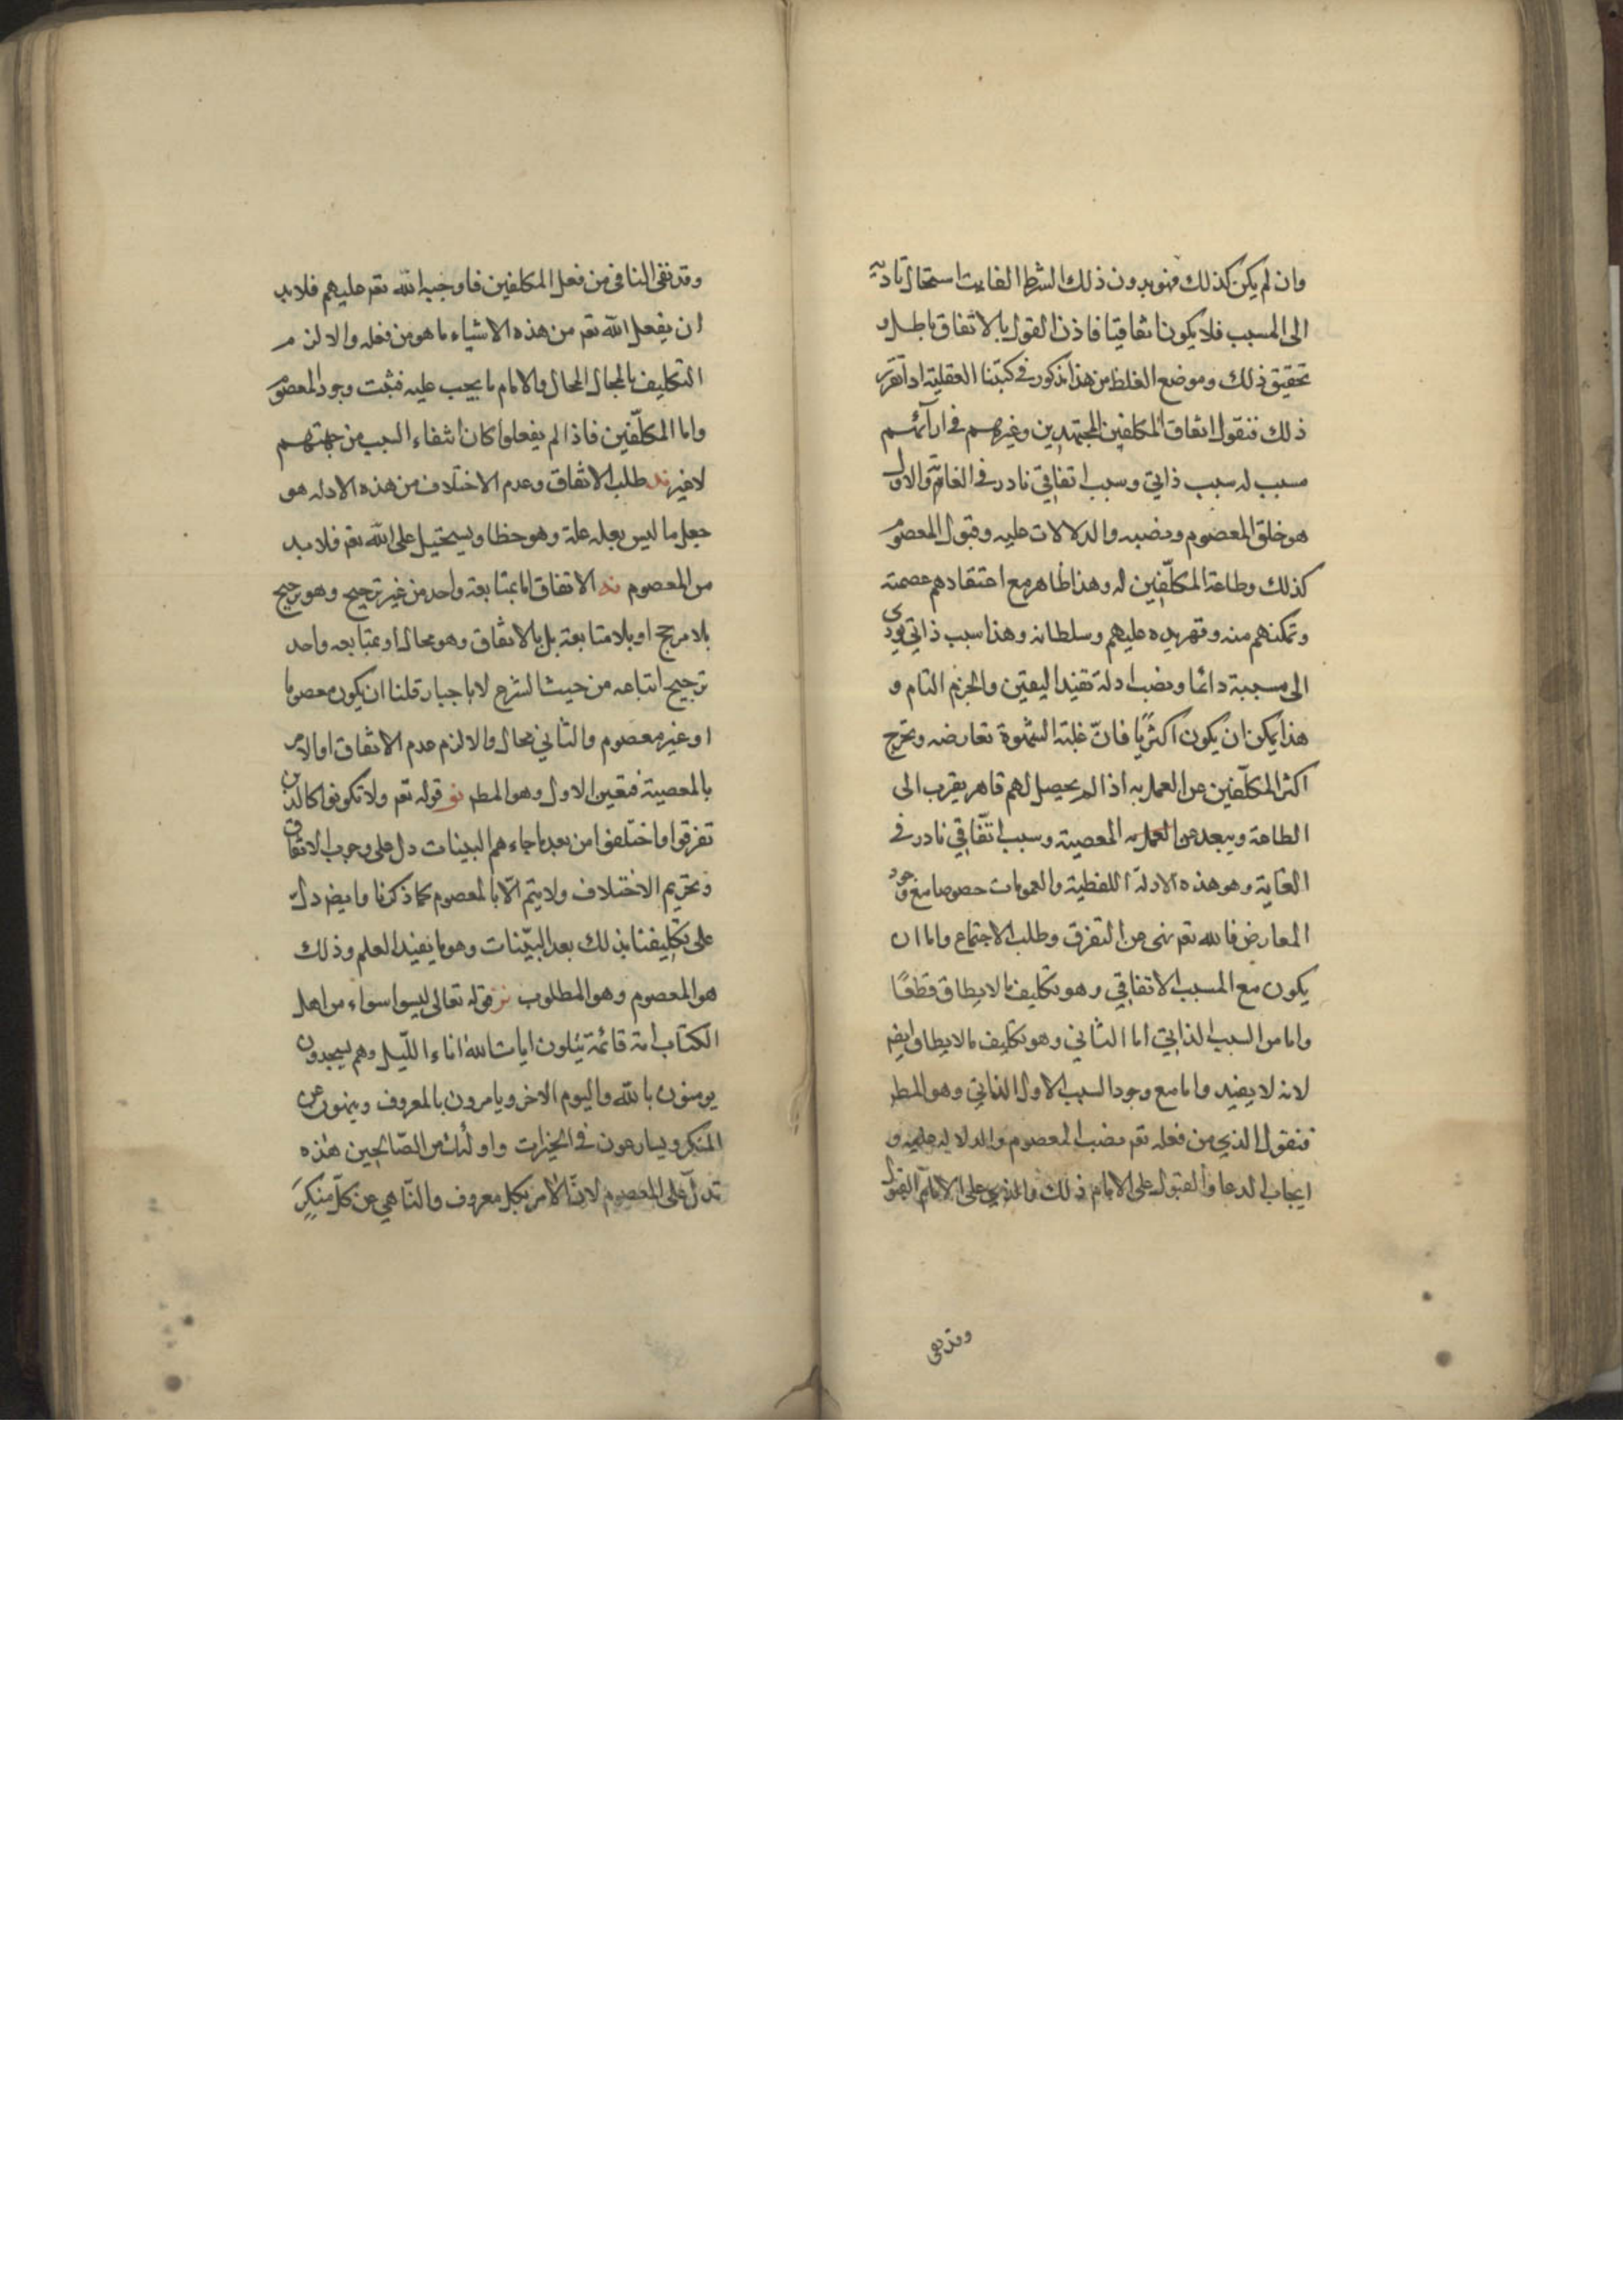 وان لم يكن كذلك فهو بدون ذلك الشرط الفايت استحال تاديه
الى المسبب فلا يكون اتفاقيا فاذن القول بالاتفاق باطل و
تحقيق ذلك وموضع الغلط من هذا مذكور في كتبنا العقلية اذا تقرر
ذلك فنقول اتفاق المكلفين المجتهدين وغيرهم في ارآئهم
مسبب له سبب ذاتي وسبب اتفاقي نادر في الغاية والاول
هو خلق المعصوم ونصبه والدلالات عليه وقبول المعصوم
كذلك وطاعة المكلّفين له وهذا ظاهر مع اعتقادهم عصمته
وتمكنهم منه وقهر يده عليهم وسلطانه وهذا سبب ذاتي يودي
الى مسببة دائما ونصب ادلة تفيد اليقين والجزم التام و
هذا يمكن ان يكون اكثريّا فانّ غلبة الشهوة تعارضه وتخرج
اكثر المكلّفين عن العمل به اذا لم يحصل لهم قاهر يقرب الى
الطاعة ويبعد عن المعصية وسبب اتّفاقي نادر في
الغاية وهو هذه الادلة اللفظية والعمومات خصوصا مع وجود
المعارض فالله تعم نهى عن التفرق وطلب الاجتماع واما ان
يكون مع المسبب الاتفاقي وهو تكليف مالا يطاق قطعًا
واما من السبب الذاتي اما الثاني وهو تكليف مالا يطاق ايضم
لانه لا يفيد واما مع وجود السبب الاول الذاتي وهو المطم
فنقول الذي من فعله تعم نصب المعصوم والدلاله عليه و
ايجاب الدعا والقبول على الامام ذلك والذي على الامام القبول
وقد نفى
وقد نفى النافي من فعل المكلفين فاوجبه الله تعم عليهم فلابد
ان يفعل الله تعم من هذه الاشياء ما هو من فعله والا لزم
التكليف بالمحال المحال والامام ما يجب عليه فثبت وجود المعصوم
واما المكلّفين فاذا لم يفعلوا كان انتفاء السبب من جهتهم
لا غير ند طلب الاتفاق وعدم الاختلاف من هذه الادله هو
جعل ما ليس بعله علة وهو خطا ويستحيل على الله تعم فلابد
من المعصوم نه الاتفاق اما بمتابعة واحد من غير ترجيح وهو ترجيح
بلا مرجح او بلا متابعة بل بالاتفاق وهو محال او بمتابعه واحد
ترجيح اتباعه من حيث الشرع لا باجبار قلنا ان يكون معصوما
او غير معصوم والثاني محال والا لزم عدم الاتفاق او الامر
بالمعصية فتعين الاول وهو المطم نو قوله تعم ولا تكونوا كالذين
تفرقوا واختلفوا من بعد ما جاءهم البينات دل على وجوب الاتفاق
وتحريم الاختلاف ولا يتم الّا بالمعصوم كما ذكرنا وايضم دل
على تكليفنا بذلك بعد البيّنات وهو ما يفيد العلم وذلك
هو المعصوم وهو المطلوب نز قوله تعالى ليسوا سواء من اهل
الكتاب امة قائمة يتلون ايات الله اناء الليل وهم يسجدون
يومنون بالله واليوم الاخر ويامرون بالمعروف وينهون عن
المنكر ويسارعون في الخيرات واولئك من الصّالحين هذه
تدلّ على المعصوم لانّ الامر بكل معروف والنّاهي عن كلّ منكر